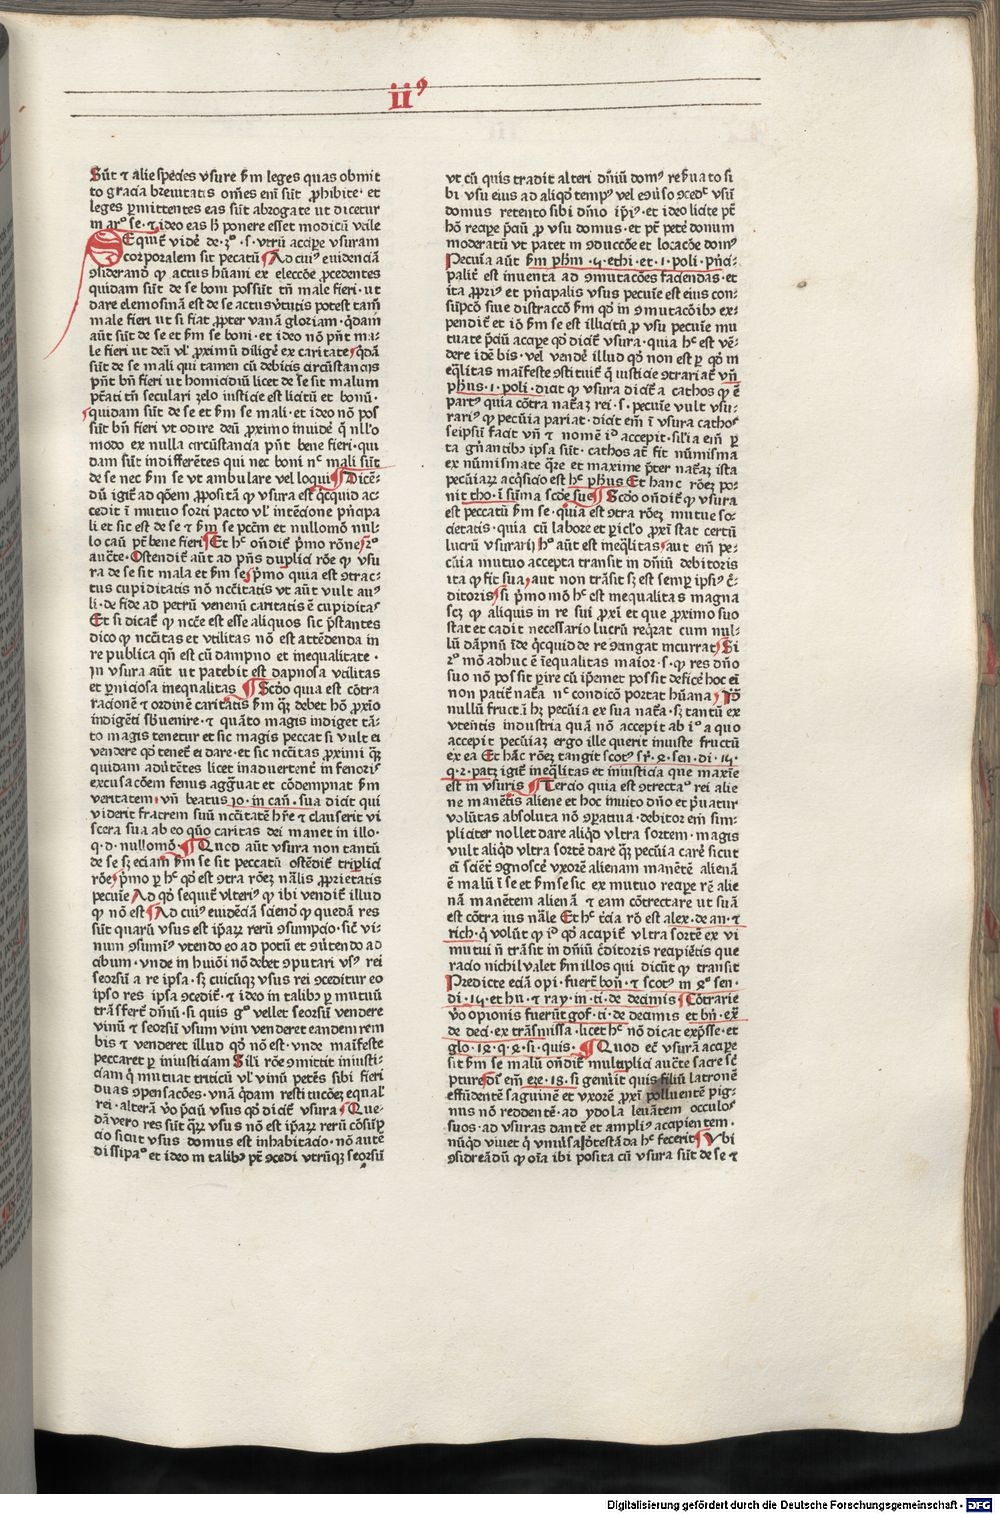 ii⁹
Sūt ⁊ alie species vsure s̄m leges quas obmit
to gracia breuitatis om̄es em̄ sūt ꝓhibite· et
leges ꝑmittentes eas sūt abrogate ut dicetur
in arº se· ⁊ ideo eas h̄ ponere esset modicū vtile
Sequit̄ videre de· 2º· s· vtrū accipe vsuram
corporalem sit pecatū ¶ Ad cuiꝰ euidenciā
ꝯsiderand̄ ꝙ actus hūani ex eleccōe ꝓcedentes
quidam sūt de se boni possūt tn̄ male fieri· ut
dare elemosinā est de se actus v̓tutis potest tam̄
male fieri ut si fiat ꝓpter vanā gloriam· q̄dam
aūt sūt de se et s̄m se boni· et ideo nō pn̄t ma-
le fieri ut deū vl̓ ꝓximū diliger̄ ex caritate· q̄dā
sūt de se mali qui tamen cū debitis circūstancijs
pn̄t bn̄ fieri ut homicidiū licet de se sit malum
pt̄ati tn̄ seculari zelo iusticie est licitū et bonū·
quidam sūt de se et s̄m se mali· et ideo nō pos
sūt bn̄ fieri vt odire deū ꝓximo inuider̄ q̄ nllō
modo ex nulla circūstancia pn̄t bene fieri· qui
dam sūt indifferētes qui nec boni nᶜ mali sūt
de se nec s̄m se vt ambulare vel loqui ¶ Dicē-
dū igit̄ ad q̄oēm ꝓpositā ꝙ vsura est q̄cquid ac-
cedit ī mutuo sorti pacto vl̓ intēcione pn̄cipa
li et sic est de se ⁊ s̄m se pctm̄ et nullomō nul-
lo casu pt̄ bene fieri ¶ Et hᶜ ondit̄ pͥmo rōne· 2º
auct̄e· Ostendit̄ aūt ad pn̄s duplici rōe ꝙ vsu
ra de se sit mala et s̄m se· pͥmo quia est ꝯtrac-
tus cupiditatis nō nccītatis vt aūt vult auꝰ
li· de fide ad petrū venenū caritatis ē cupiditas
Et si dicat̄ ꝙ ncc̄e est esse aliquos sic pͥstantes
dico ꝙ nccītas et vtilitas nō est attēdenda in
re publica qn̄ est cū dampno et inequalitate·
In vsura aūt ut patebit est dapnosa vtilitas
et ꝑniciosa inequalitas ¶ Scd̄o quia est cōtra
racionē ⁊ ordinē caritatis s̄m q̄ꝫ debet hō ꝓxīo
indigēti sb̄uenire· ⁊ quāto magis indiget tā-
to magis tenetur et sic magis peccat si vult ei
vendere qd̄ tenet̄ ei dare· et sic nccītas ꝓximi q̄ꝫ
quidam aduertētes licet inaduertent̄ in fenoris
excusacōem fenus agḡuat et cōdempnat s̄m
veritatem· vn̄ beatus io· in can̄· sua dicit qui
viderit fratrem suū nccītatē hr̄e ⁊ clauserit vi
scera sua ab eo quō caritas dei manet in illo·
q· d· nullomō ¶ Quod aūt vsura non tantū
de se sꝫ eciam s̄m se sit peccatū ostēdit̄ triplici
rōe· pͥmo ꝑ hᶜ qd̄ est ꝯtra rōeꝫ nālis ꝓprietatis
pecuīe· Ad qd̄ sequit̄ vlteriꝰ ꝙ ibi vendit̄ illud
ꝙ nō est ¶ Ad cuiꝰ euidēciā sciend̄ ꝙ quedā res
sūt quarū vsus est ip̄aꝝ rerū ꝯsumpcio· sic̄ vi-
num ꝯsumiꝰ vtendo eo ad potū et ꝯūtendo ad
cibum· vnde in huiōi nō debet ꝯputari vsꝰ rei
seorsū a re ipsa· sꝫ cuicūqꝫ vsus rei ꝯceditur eo
ipso res ipsa ꝯcedit̄· ⁊ ideo in talibꝰ ꝑ mutuū
trāsfert̄ dn̄iū· si quis gº vellet seorsū vendere
vinū ⁊ seorsū vsum vini venderet eandem rem
bis ⁊ venderet illud qd̄ nō est· vnde maīfeste
peccaret ꝑ iniusticiam Sili rōe ꝯmittit iniusti-
ciam q̄ mutuat triticū vl̓ vinū petēs sibi fieri
duas ꝯpensacōes· vnā q̄dam restitucōeꝫ equal̓
rei· alterā vo p̄ciū vsus qd̄ dicit̄ vsura ¶ Que-
dā vero res sūt q̄ꝝ vsus nō est ip̄aꝝ rerū cōsūp
cio sicut vsus domus est inhabitacio· nō autē
dissipaº et ideo in talibꝰ pt̄ ꝯcedi vtrūqꝫ seorsū
vt cū quis tradit alteri dn̄iū domꝰ reẜuato si
bi vsu eius ad aliqd̄ tempꝰ vel eꝯuꝰso ꝯcedᶜ vsū
domus retento sibi dn̄io ip̄iꝰ· et ideo licite pt̄
hō recipe p̄ciū ꝓ vsu domus· et pt̄ petē donum
moderatū vt patet in ꝯduccōe et locacōe domꝰ
Pecuīa aūt s̄m ph̄m ·5· ethi· et ·1· poli· pn̄ci-
palit̄ est inuenta ad ꝯmutacōes faciendas· et
ita ꝓpriꝰ et pn̄cipalis vsus pecuīe est eius con-
sūpcō siue distraccō s̄m qd̄ in ꝯmutacōibꝰ ex-
pendit̄ et iō s̄m se est illicitū ꝓ vsu pecuīe mu
tuate p̄ciū accipe qd̄ dicit̄ vsura· quia hᶜ est vē-
dere idē bis· vel vendē illud qd̄ non est ꝑ qd̄ in
eq̄litas maīfeste ꝯstituit̄ q̄ iusticie ꝯtrariat̄ vn̄
ph̄us ·1· poli· dicit ꝙ vsura dicit̄ a cathos ꝙ ē
partꝰ quia cōtra nat̄aꝫ rei· s· pecuīe vult vsu-
rariꝰ ꝙ pecuīa pariat· dicit em̄ ī vsura cathos
seipsū facit vn̄ ⁊ nomē iᵈ accepit· sil̓ia em̄ ꝑ
ta gn̄antibꝰ ipsa sūt· cathos at̄ fit nūmisma
ex nūmismate q̄re et maxime p̄ter nat̄aꝫ ista
pecuīaꝝ acq̄sicio est hᶜ ph̄us Et hanc rōeꝫ po-
nit tho· ī sūma scd̄e sue ¶ Scd̄o ondit̄ ꝙ vsura
est peccatū s̄m se· quia est ꝯtra rōeꝫ mutue so-
cietatis· quia cū labore et ꝑicl̓o ꝓxī stat certū
lucrū vsurarij hᶜ aūt est ineq̄litas· aut em̄ pe-
cūia mutuo accepta transit in dn̄iū debitoris
ita ꝙ fit sua· aut non trāsit sꝫ est semꝑ ipsiꝰ c̄-
ditoris· si pͥmo mō hᶜ est inequalitas magna
scꝫ ꝙ aliquis in re sui ꝓxī et que ꝓximo suo
stat et cadit necessario lucrū req̄rat cum nul-
lū dāpnū īde q̄cquid de re ꝯtingat incurrat ¶ Si
2º mō adhuc ē īequalitas maior· s· ꝙ res dn̄o
suo nō possit ꝑire cū īpemet possit deficē hoc ei
non patit̄ nat̄a nᶜ condicō portat hūana· Itē
nullū fruct̄ ī hꝫ pecūia ex sua nat̄a· sꝫ tantū ex
vtentis industria quā nō accepit ab iº a quo
accepit pecūiaꝫ ergo ille querit iniuste fructū
ex ea Et hāc rōeꝫ tangit scotꝰ sr̄· 4· sen· di· 15·
q· 2· patꝫ igit̄ ineq̄litas et iniusticia que maxīe
est in vsuris ¶ Tercio quia est ꝯtrectaº rei alie
ne manētis aliene et hoc inuito dn̄o et p̄uatur
volūtas absoluta nō ꝯꝑatiua· debitor em̄ sim-
pliciter nollet dare aliqd̄ vltra sortem· magis
vult aliqd̄ vltra sortē dare q̄ꝫ pecūia carē sicut
ei scient̄ ꝯgnoscē vxorē alienam manētē alienā
ē malū ī se et s̄m se sic ex mutuo recipe rē alie
nā manētem alienā ⁊ eam cōtrectare ut suā
est cōtra ius nāle Et hᶜ ēcia rō est alex· de an· ⁊
rich· q̄ volūt ꝙ iᵈ qd̄ accipit̄ vltra sortē ex vi
mutui n̄ trāsit in dn̄iū c̄ditoris recipiētis que
racio nichil valet s̄m illos qui dicūt ꝙ transit
Predicte eciā opi· fuer̄t bon̄· ⁊ scotꝰ in 4º sen·
di· 15· et hu· ⁊ ray· in· ti· de decimis ¶ Cōtrarie
vō opionis fuerūt gof· ti· de decimis et bn̄· ex̄
de deci· ex trāsmissa· licet hᶜ nō dicat exp̄sse· et
glo· 14· q· 4· si· quis· ¶ Quod ec̄ vsurā accipe
sit s̄m se malū ondit̄ multiplici auct̄e sacre sc̄
pture· dr̄ em̄ eze· 18· si genūit quis filiū latronē
effūdentē saguinē et vxorē ꝓxī polluentē pig-
nus nō reddentē· ad ydola leuātem occulos
suos· ad vsuras dantē et ampliꝰ accipientem·
nūqd̄ viuet q̄ vniūsa detestāda hᶜ fecerit ¶ Vbi
ꝯsidreādū ꝙ oīa ibi posita cū vsura sūt de se ⁊
Digitalisierung gefördert durch die Deutsche Forschungsgemeinschaft · DFG